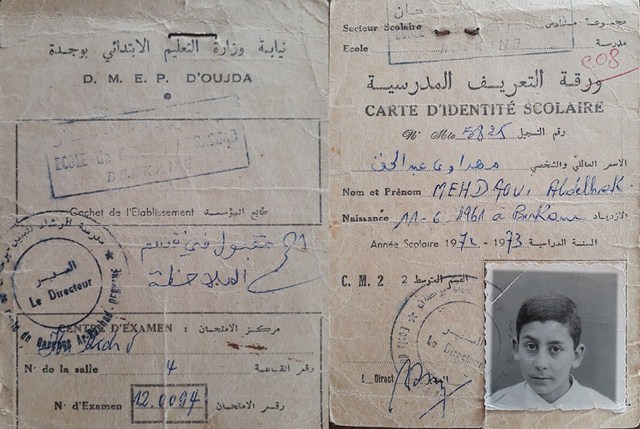 نيابة وزارة التعليم الابتدائي بوجدة
D. M. E. P. D'OUJDA
ECOLE de
Cachet de l'Etablissement طابع المؤسسة
مقبول في قسم
الملاحظة
المدير
Le Directeur
CENTRE D'EXAMEN : مركز الامتحان
N° de la salle 4 رقم القاعة
N° d'Examen 12.0094 رقم الامتحان
Secteur Scolaire مجموعة مدارس
Ecole مدرسة
C08
ورقة التعريف المدرسية
CARTE D'IDENTITÉ SCOLAIRE
N° Mle 5825 رقم التسجيل
الاسم العائلي والشخصي مهداوي عبد الحق
Nom et Prénom MEHDAOUI Abdelhak
Naissance 11-6-1961 à Berkane الازدياد
Année Scolaire 1972 - 1973 السنة الدراسية
C. M. 2 القسم المتوسط 2
المدير
Le Directeur
Direct